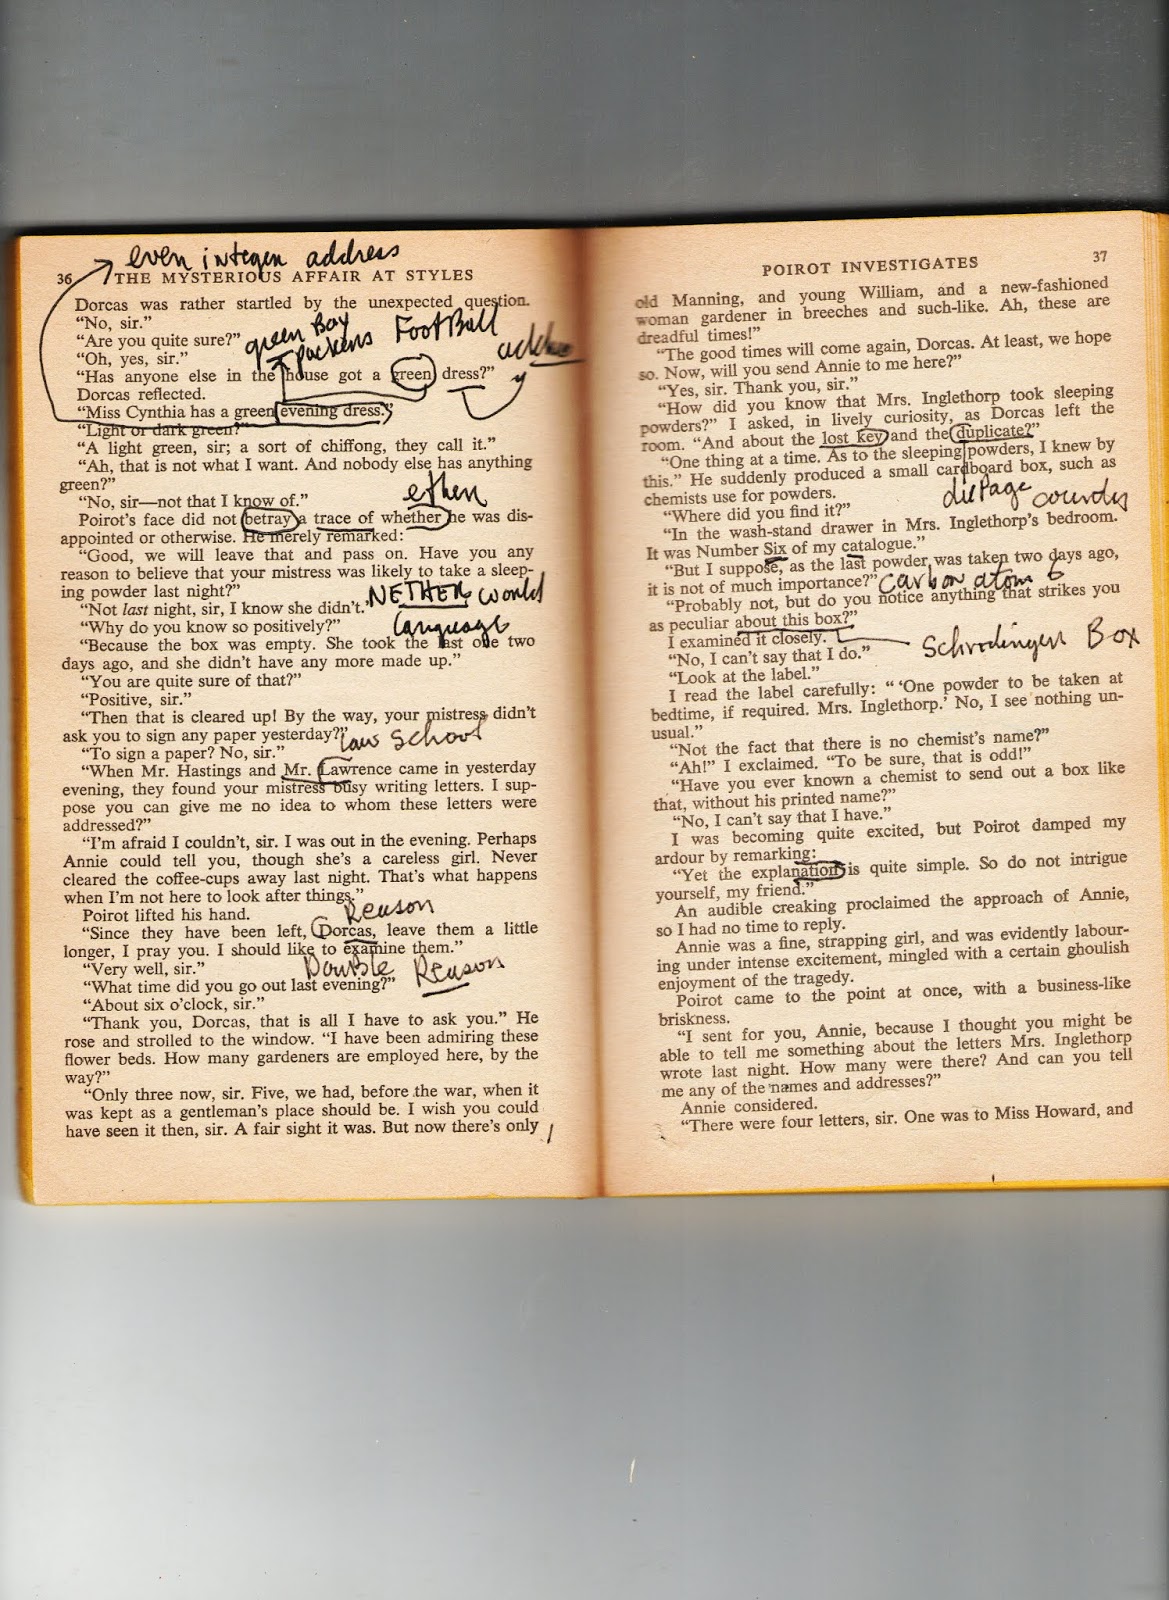 even integer address
36 THE MYSTERIOUS AFFAIR AT STYLES
Dorcas was rather startled by the unexpected question.
“No, sir.”
green Bay
FootBall
“Are you quite sure?”
packers
“Oh, yes, sir.”
“Has anyone else in the house got a green dress?”
Dorcas reflected.
“Miss Cynthia has a green evening dress.”
“Light or dark green?”
“A light green, sir; a sort of chiffong, they call it.”
“Ah, that is not what I want. And nobody else has anything
green?”
“No, sir—not that I know of.”
ether
Poirot’s face did not betray a trace of whether he was dis-
appointed or otherwise. He merely remarked:
“Good, we will leave that and pass on. Have you any
reason to believe that your mistress was likely to take a sleep-
ing powder last night?”
NETHER world
“Not last night, sir, I know she didn’t.”
“Why do you know so positively?”
Language
“Because the box was empty. She took the last one two
days ago, and she didn’t have any more made up.”
“You are quite sure of that?”
“Positive, sir.”
“Then that is cleared up! By the way, your mistress didn’t
ask you to sign any paper yesterday?”
law school
“To sign a paper? No, sir.”
“When Mr. Hastings and Mr. Lawrence came in yesterday
evening, they found your mistress busy writing letters. I sup-
pose you can give me no idea to whom these letters were
addressed?”
“I’m afraid I couldn’t, sir. I was out in the evening. Perhaps
Annie could tell you, though she’s a careless girl. Never
cleared the coffee-cups away last night. That’s what happens
when I’m not here to look after things.”
Reason
Poirot lifted his hand.
“Since they have been left, Dorcas, leave them a little
longer, I pray you. I should like to examine them.”
Double Reason
“Very well, sir.”
“What time did you go out last evening?”
“About six o’clock, sir.”
“Thank you, Dorcas, that is all I have to ask you.” He
rose and strolled to the window. “I have been admiring these
flower beds. How many gardeners are employed here, by the
way?”
“Only three now, sir. Five, we had, before the war, when it
was kept as a gentleman’s place should be. I wish you could
have seen it then, sir. A fair sight it was. But now there’s only
POIROT INVESTIGATES 37
old Manning, and young William, and a new-fashioned
woman gardener in breeches and such-like. Ah, these are
dreadful times!”
“The good times will come again, Dorcas. At least, we hope
so. Now, will you send Annie to me here?”
“Yes, sir. Thank you, sir.”
“How did you know that Mrs. Inglethorp took sleeping
powders?” I asked, in lively curiosity, as Dorcas left the
room. “And about the lost key and the duplicate?”
“One thing at a time. As to the sleeping powders, I knew by
this.” He suddenly produced a small cardboard box, such as
chemists use for powders.
“Where did you find it?”
“In the wash-stand drawer in Mrs. Inglethorp’s bedroom.
It was Number Six of my catalogue.”
“But I suppose, as the last powder was taken two days ago,
it is not of much importance?”
carbon atom 6
“Probably not, but do you notice anything that strikes you
as peculiar about this box?”
I examined it closely.
Schrodinger Box
“No, I can’t say that I do.”
“Look at the label.”
I read the label carefully: “ ‘One powder to be taken at
bedtime, if required. Mrs. Inglethorp.’ No, I see nothing un-
usual.”
“Not the fact that there is no chemist’s name?”
“Ah!” I exclaimed. “To be sure, that is odd!”
“Have you ever known a chemist to send out a box like
that, without his printed name?”
“No, I can’t say that I have.”
I was becoming quite excited, but Poirot damped my
ardour by remarking:
“Yet the explanation is quite simple. So do not intrigue
yourself, my friend.”
An audible creaking proclaimed the approach of Annie,
so I had no time to reply.
Annie was a fine, strapping girl, and was evidently labour-
ing under intense excitement, mingled with a certain ghoulish
enjoyment of the tragedy.
Poirot came to the point at once, with a business-like
briskness.
“I sent for you, Annie, because I thought you might be
able to tell me something about the letters Mrs. Inglethorp
wrote last night. How many were there? And can you tell
me any of the names and addresses?”
Annie considered.
“There were four letters, sir. One was to Miss Howard, and